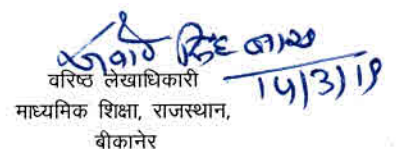 सिंह
14/3/19
वरिष्ठ लेखाधिकारी
माध्यमिक शिक्षा, राजस्थान,
बीकानेर